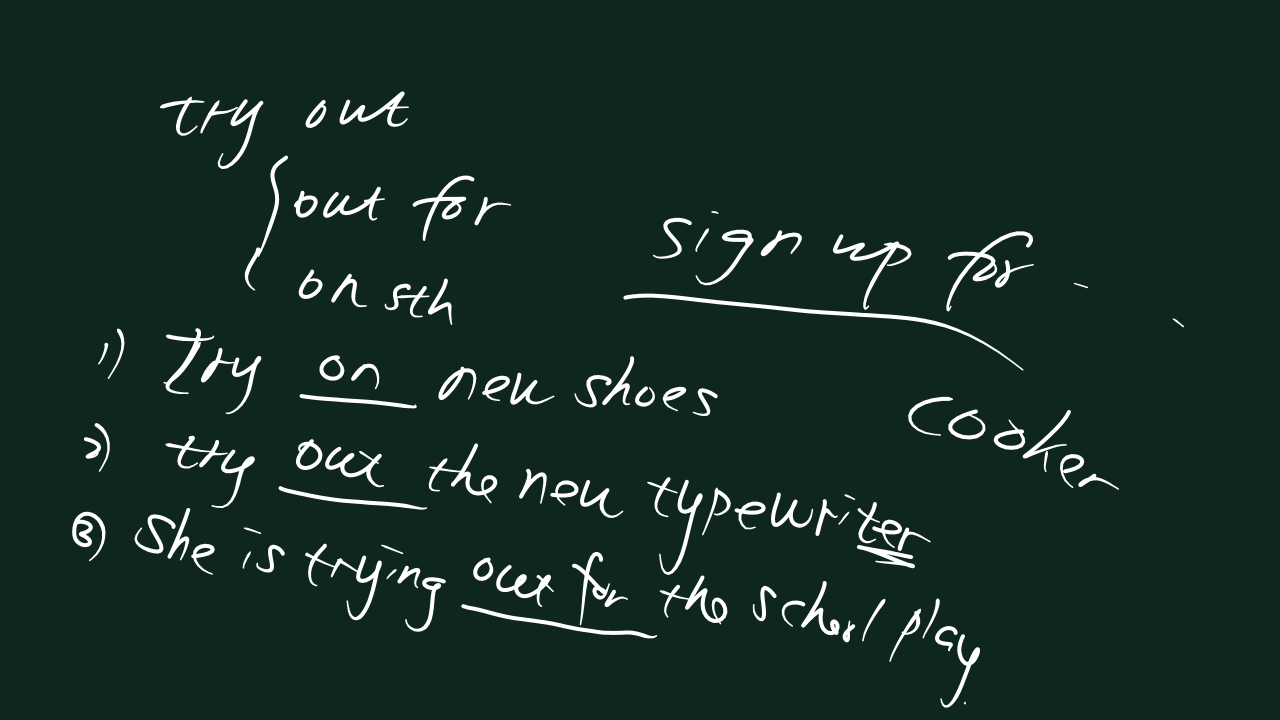 try out
out for
on sth
sign up for -
1) Try on new shoes
cooker
2) try out the new typewriter
③) She is trying out for the school play